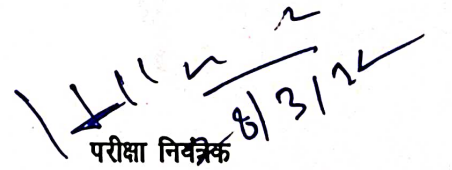 8/3/22
परीक्षा नियंत्रक